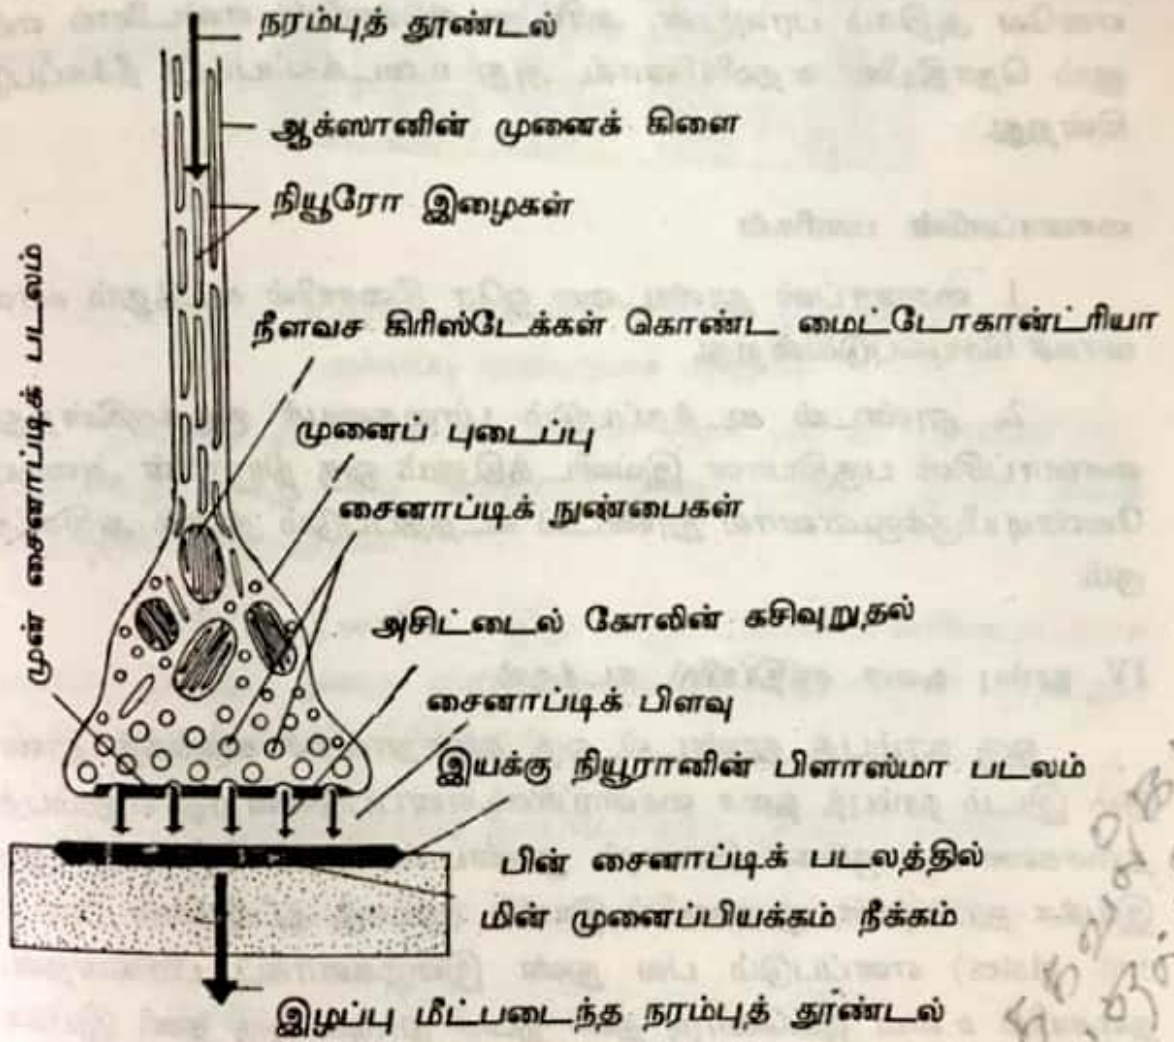 நரம்புத் தூண்டல்
ஆக்ஸானின் முனைக் கிளை
நியூரோ இழைகள்
முன் சைனாப்டிக் படலம்
நீளவச கிரிஸ்டேக்கள் கொண்ட மைட்டோகான்ட்ரியா
முனைப் புடைப்பு
சைனாப்டிக் நுண்பைகள்
அசிட்டைல் கோலின் கசிவுறுதல்
சைனாப்டிக் பிளவு
இயக்கு நியூரானின் பிளாஸ்மா படலம்
பின் சைனாப்டிக் படலத்தில்
மின் முனைப்பியக்கம் நீக்கம்
இழப்பு மீட்படைந்த நரம்புத் தூண்டல்